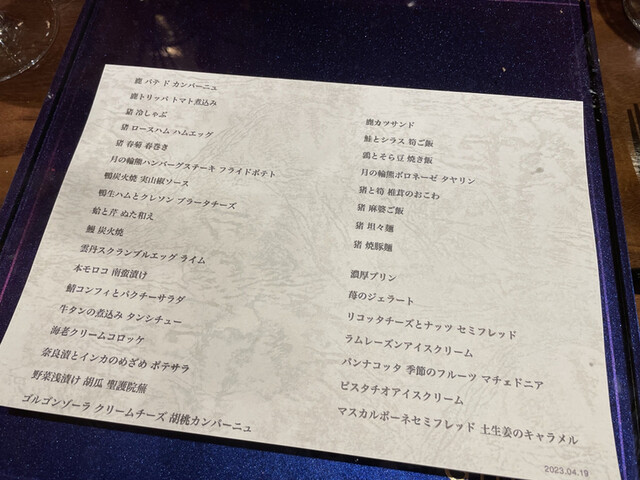 鹿 パテ ド カンパーニュ
鹿トリッパ トマト煮込み
猪 冷しゃぶ
猪 ロースハム ハムエッグ
猪 春菊 春巻き
月の輪熊ハンバーグステーキ フライドポテト
鴨炭火焼 実山椒ソース
鴨生ハムとクレソン ブラータチーズ
蛤と芹 ぬた和え
鰻 炭火焼
雲丹スクランブルエッグ ライム
本モロコ 南蛮漬け
鯖コンフィとパクチーサラダ
牛タンの煮込み タンシチュー
海老クリームコロッケ
奈良漬とインカのめざめ ポテサラ
野菜浅漬け 胡瓜 聖護院蕪
ゴルゴンゾーラ クリームチーズ 胡桃カンパーニュ
鹿カツサンド
鮭とシラス 筍ご飯
鶏とそら豆 焼き飯
月の輪熊ボロネーゼ タヤリン
猪と筍 椎茸のおこわ
猪 麻婆ご飯
猪 坦々麺
猪 焼豚麺
濃厚プリン
苺のジェラート
リコッタチーズとナッツ セミフレッド
ラムレーズンアイスクリーム
パンナコッタ 季節のフルーツ マチェドニア
ピスタチオアイスクリーム
マスカルポーネセミフレッド 土生姜のキャラメル
2023.04.19